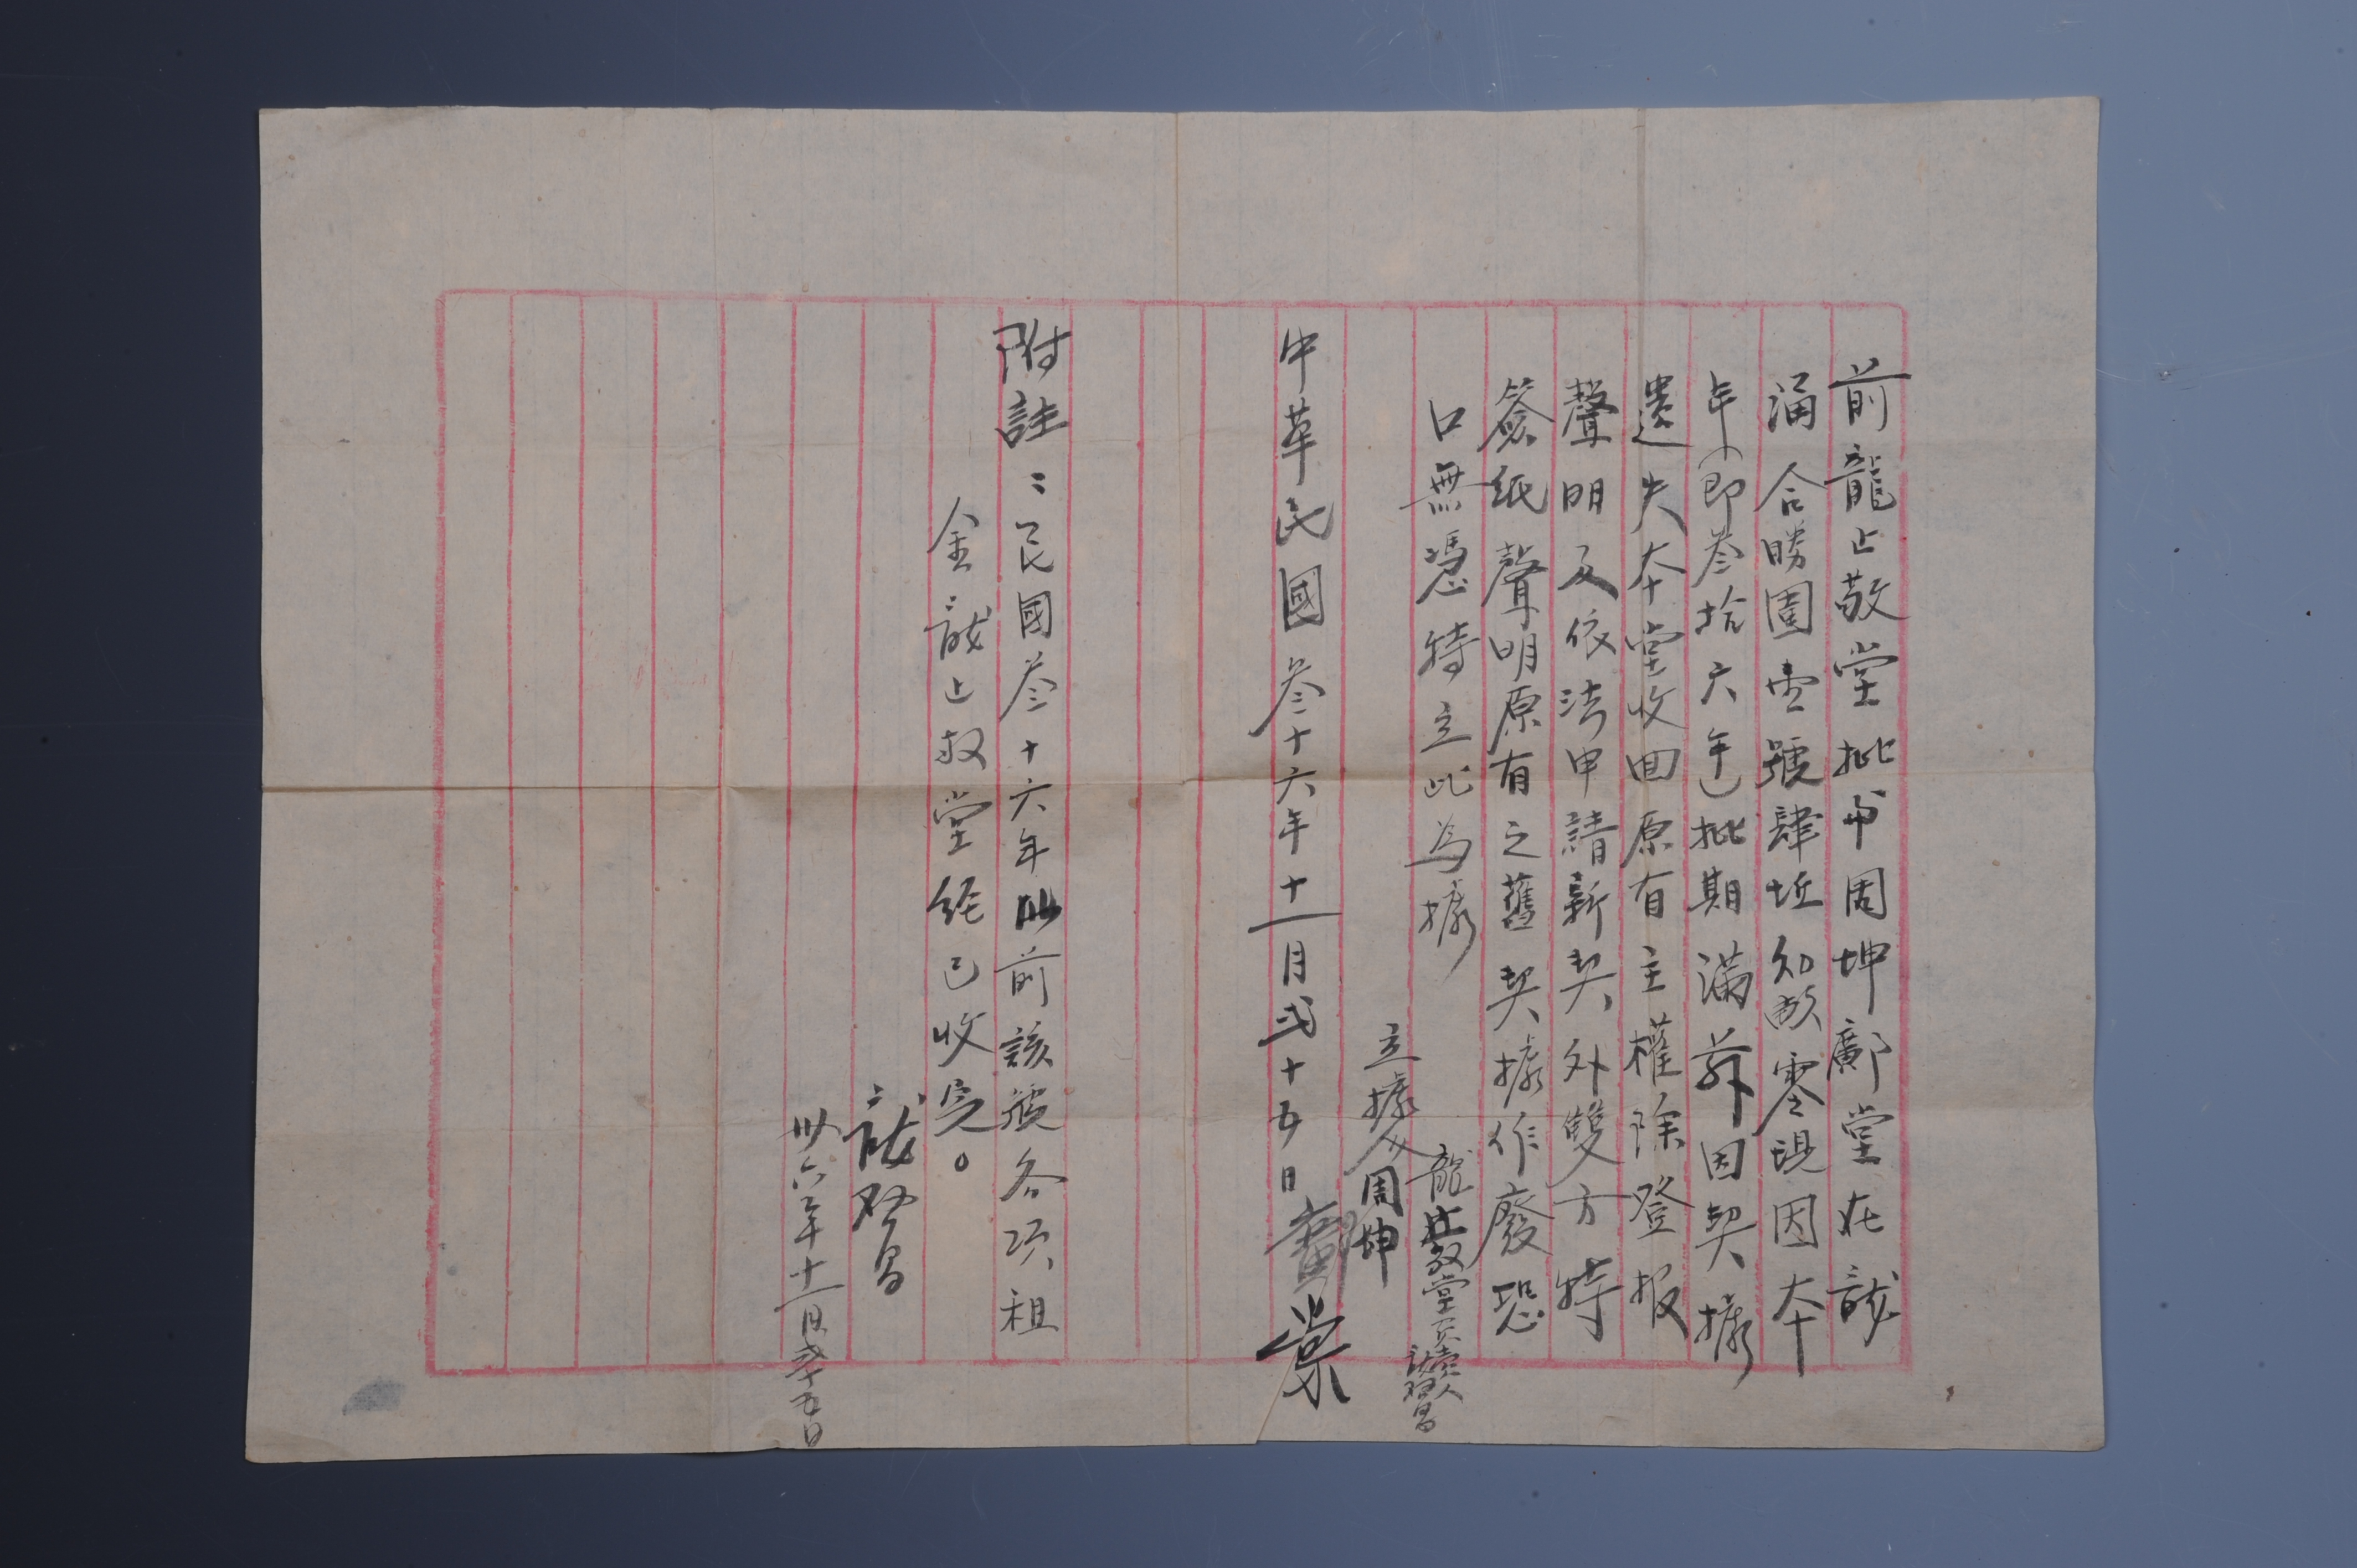 前龍止敬堂批與周坤鄺堂在龍
涌合勝圍壹號肆坵 畝零現因本
年(即叁拾六年)批期滿 因契據
遺失本堂收回原有主權除登报
聲明及依法申請新契外雙方特
簽紙聲明原有之舊契據作廢恐
口無憑特立此為據
龍止敬堂負責人
立據人周坤
中華民國叁十六年十一月弍十五日 堂
附註:民國叁十六年以前該號各项租
金龍止敬堂經已收完。
卅六年十一月弍十五日